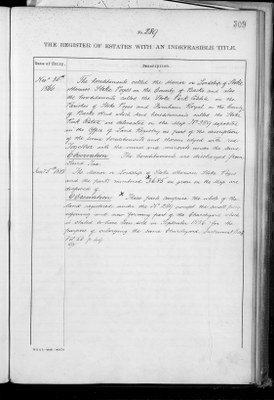 309
No. 289
THE REGISTER OF ESTATES WITH AN INDEFEASIBLE TITLE.
Date of Entry.
Description.
The hereditaments called the Manor or Lordship of Stoke
otherwise Stoke Poges in the County of Bucks and also
the hereditaments called the Stoke Park Estate in the
Parishes of Stoke Poges and Farnham Royal in the County
of Bucks And which said hereditaments called the Stoke
Park Estate are delineated on the Map No. 289 deposited
in the Office of Land Registry as part of the description
of the same hereditaments and thereon edged with red
Together with the mines and minerals under the same
Observation The hereditaments are discharged from
Land Tax
The Manor or Lordship of Stoke otherwise Stoke Poges
and the parts numbered on the Map are
disposed of
Observation These parts comprise the whole of the
land registered under the No. 289 except the
and now forming part of the Churchyard which
is stated to have been sold in September for the
purpose of enlarging the same Churchyard